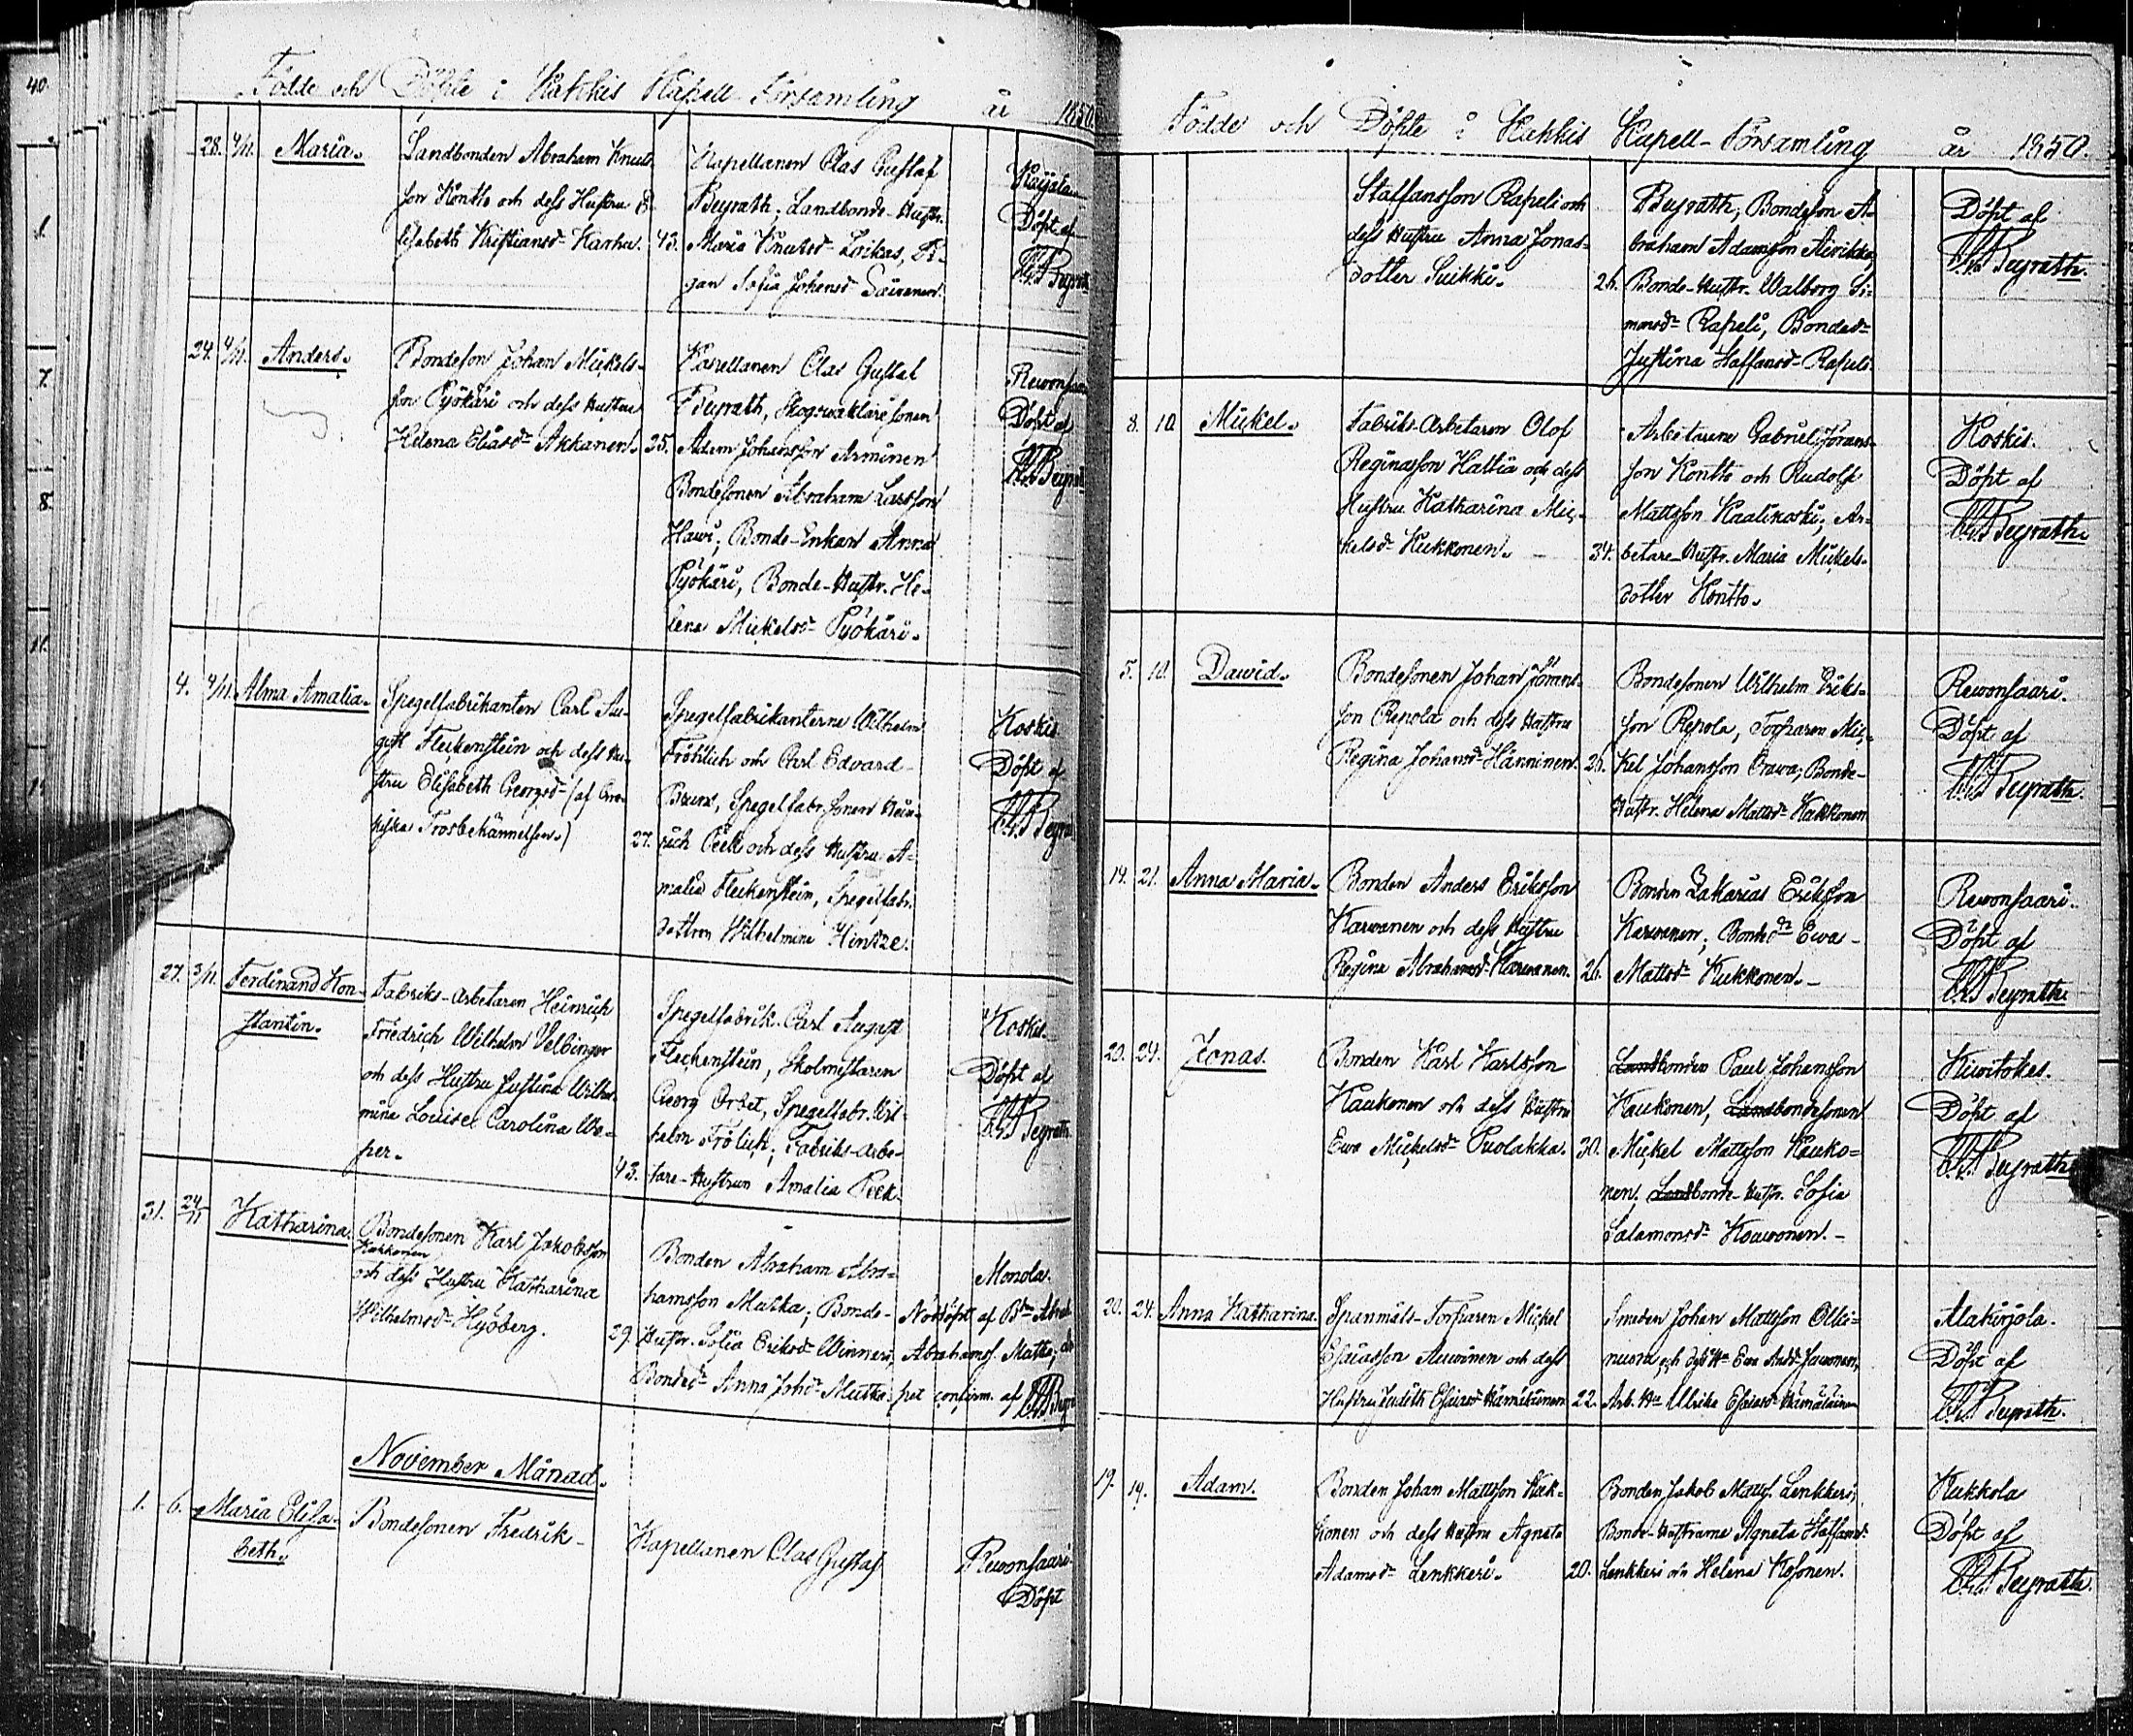 Födde och Döpte i Kakkis Kapell-Församling år 1850.
28. 4/11. Maria.
Landbonden Abraham Knuts-
son Kontto och dess Hustru E-
lisabeth Kristiansd. Karhu. 43.
Kapellanen Clas Gustaf
Beyrath; Landbonde-Hustr.
Maria Knutsd. Loikas, Pi-
gan Sofia Johansd. Säiranen.
Döpt af
C.G. Beyrath
24. 4/11. Anders.
Bondeson Johan Mickels-
son Pyökäri och dess Hustru
Helena Eliasd. Akkanen. 35.
Kapellanen Clas Gustaf
Beyrath, Skogswaktaresonen
Adam Johansson Arminen
Bondesonen Abraham Larsson
Hawi; Bonde-Enkan Anna
Pyökäri, Bonde-Hustr. He-
lena Mickelsd. Pyökäri.
Rewonsaari
Döpt af
C.G. Beyrath
4. 4/11. Alma Amalia.
Spegelfabrikanten Carl Au-
gust Fleckenstein och dess Hu-
stru Elisabeth Georgsd. (af
Trosbekännelsen.) 27.
Spegelfabrikanterne Wilhelm
Fröhlich och Carl Edvard
Brunx, Spegelfabr.sonen Hein-
rich Peek och dess Hustru A-
malia Fleckenstein, Spegelfabr.
dottren Wilhelmine Hintze.
Koskis
Döpt af
C.G. Beyrath
27. 3/11. Ferdinand Kon-
stantin.
Fabriks-arbetaren Heinrich
Friedrich Wilhelm Velbinger
och dess Hustru Justina Wilhel-
mina Louise Carolina We-
per. 43.
Spegelfabrik. Carl August
Fleckenstein, Skolmästaren
Georg Orbet, Spegelfabr. Wil-
helm Frölich; Fabriks-arbe-
tare-Hustrun Amalia Peek.
Koskis.
Döpt af
C.G. Beyrath
31. 24/11 Katharina.
Bondesonen Karl Jakobsson
Kakkonen
och dess Hustru Katharina
Wilhelmsd. Hyöberg. 29.
Bonden Abraham Abra-
hamsson Mutka; Bonde-
Hustr. Sofia Eriksd. Winneri,
Bonded. Anna Johd. Mutka.
Monola.
Nöddöpt af Bdn Abrah.
Abrahamss. Mutka;
confirm. af C.G. Beyrath
November Månad.
1. 6. Maria Elisa-
beth.
Bondesonen Fredrik
Kapellanen Clas Gustaf
Rewonsaari
Döpt
Födde och Döpte i Kakkis Kapell-Församling år 1850.
Staffansson Rapeli och
dess Hustru Anna Jonas-
dotter Suikki. 26.
Beyrath, Bondeson A-
braham Adamsson Airikka,
Bonde-Hustr. Walborg Si-
monsd. Rapeli, Bonded.
Justina Staffansd. Rapeli.
Döpt af
C.G. Beyrath.
8. 10. Mickel.
Fabriks-Arbetaren Olof
Reginasson Hattia och dess
Hustru Katharina Mic-
kelsd. Kukkonen. 34.
Arbetarene Gabriel Jörans-
son Kontto och Rudolf
Mattsson Kaalikoski; Ar-
betare-Hustr. Maria Mickels-
dotter Kontto.
Koskis.
Döpt af
C.G. Beyrath.
5. 10. Dawid.
Bondesonen Johan Jörans-
son Repola och dess Hustru
Regina Johansd. Hänninen. 26.
Bondesonen Wilhelm Eriks-
son Repola, Torparen Mic-
kel Johansson Orawa; Bonde-
Hustr. Helena Mattsd. Kakkonen
Rewonsaari.
Döpt af
C.G. Beyrath.
14. 21. Anna Maria.
Bonden Anders Eriksson
Karwanen och dess Hustru
Regina Abrahamsd. Karwanen. 26.
Bonden Zakarias Eriksson
Karwanen; Bonded. Ewa
Mattsd. Kukkonen.
Rewonsaari.
Döpt af
C.G. Beyrath
20. 24. Jonas.
Bonden Karl Karlsson
Kaukonen och dess Hustru
Ewa Mickelsd. Puolakka. 30.
Landbonden Paul Johansson
Kaukonen, Landbondesonen
Mickel Mattsson Kauko-
nen, Landbonde-Hustr. Sofia
Salamonsd. Kouwonen.
Kuwitokas.
Döpt af
C.G. Beyrath
20. 24. Anna Katharina.
Spanmåls-Torparen Mickel
Esaiasson Auwinen och dess
Hustru Judith Esaiasd. Hämäläinen 22.
Smeden Johan Mattsson Olli-
nuora och dess Hu Ewa Andd. Jauwonen,
Arb. Hu Ulrika Esaiasd. Hämäläinen
Alakirjola.
Döpt af
C.G. Beyrath.
19. 19. Adam.
Bonden Johan Mattsson Kuk-
konen och dess Hustru Agneta
Adamsd. Lenkkeri. 20.
Bonden Jakob Matts. Lenkkeri,
Bonde-Hustrurne Agneta Staffansd.
Lenkkeri och Helena Kosonen.
Kukkola
Döpt af
C.G. Beyrath.
40.
1.
7.
8.
11.